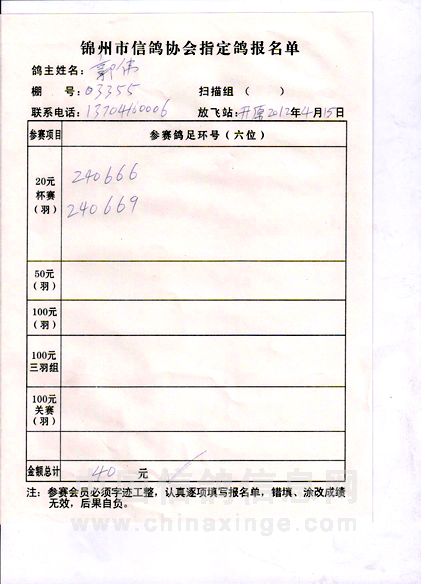 锦州市信鸽协会指定鸽报名单
鸽主姓名：郭伟
棚 号：03355 扫描组（ ）
联系电话：13704160006 放飞站：开原2012年4月15日
参赛项目 参赛鸽足环号（六位）
20元
杯赛
（羽）
240666
240669
50元
（羽）
100元
（羽）
100元
三羽组
100元
关赛
（羽）
金额总计 40 元
注：参赛会员必须字迹工整，认真逐项填写报名单，错填、涂改成绩
无效，后果自负。
信鸽信息网
www.chinaxinge.com